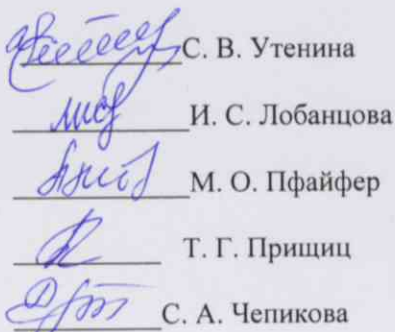 С. В. Утенина
И. С. Лобанцова
М. О. Пфайфер
Т. Г. Прищиц
С. А. Чепикова